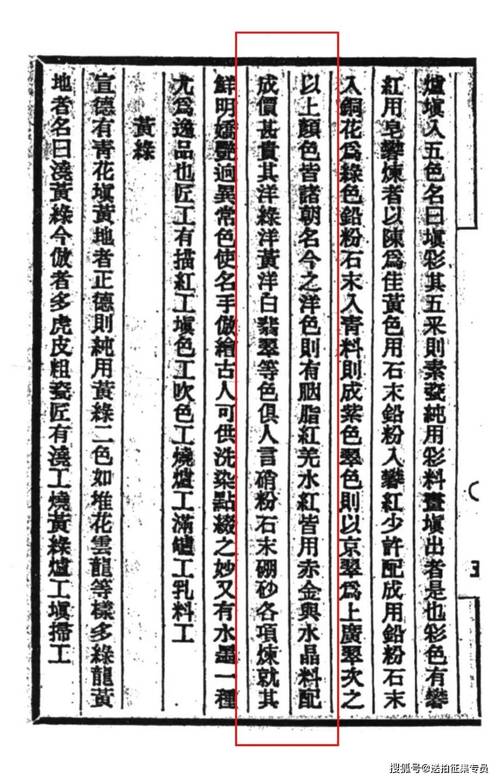 爐塡入五色名曰塡彩其五采則素瓷純用彩料畫塡出者是也彩色有礬
紅用皂礬煉者以陳爲佳黃色用石末鉛粉入礬紅少許配成用鉛粉石末
入銅花爲綠色鉛粉石末入青料則成紫色翠色則以京翠爲上廣翠次之
以上顏色皆諸朝名今之洋色則有胭脂紅羌水紅皆用赤金與水晶料配
成價甚貴其洋綠洋黃洋白翡翠等色俱人言硝粉石末硼砂各項煉就其
鮮明嬌艷迥異常色使名手倣繪古人可供洗染點綴之妙又有水墨一種
尤爲逸品也匠工有描紅工塡色工吹色工燒爐工滿罏工乳料工
黃綠
宣德有青花塡黃地者正德則純用黃綠二色如堆花雲龍等樣多綠龍黃
地者名曰澆黃綠今倣者多虎皮粗瓷匠有澆工燒黃綠爐工塡掃工
搜狐号@送拍征集专员